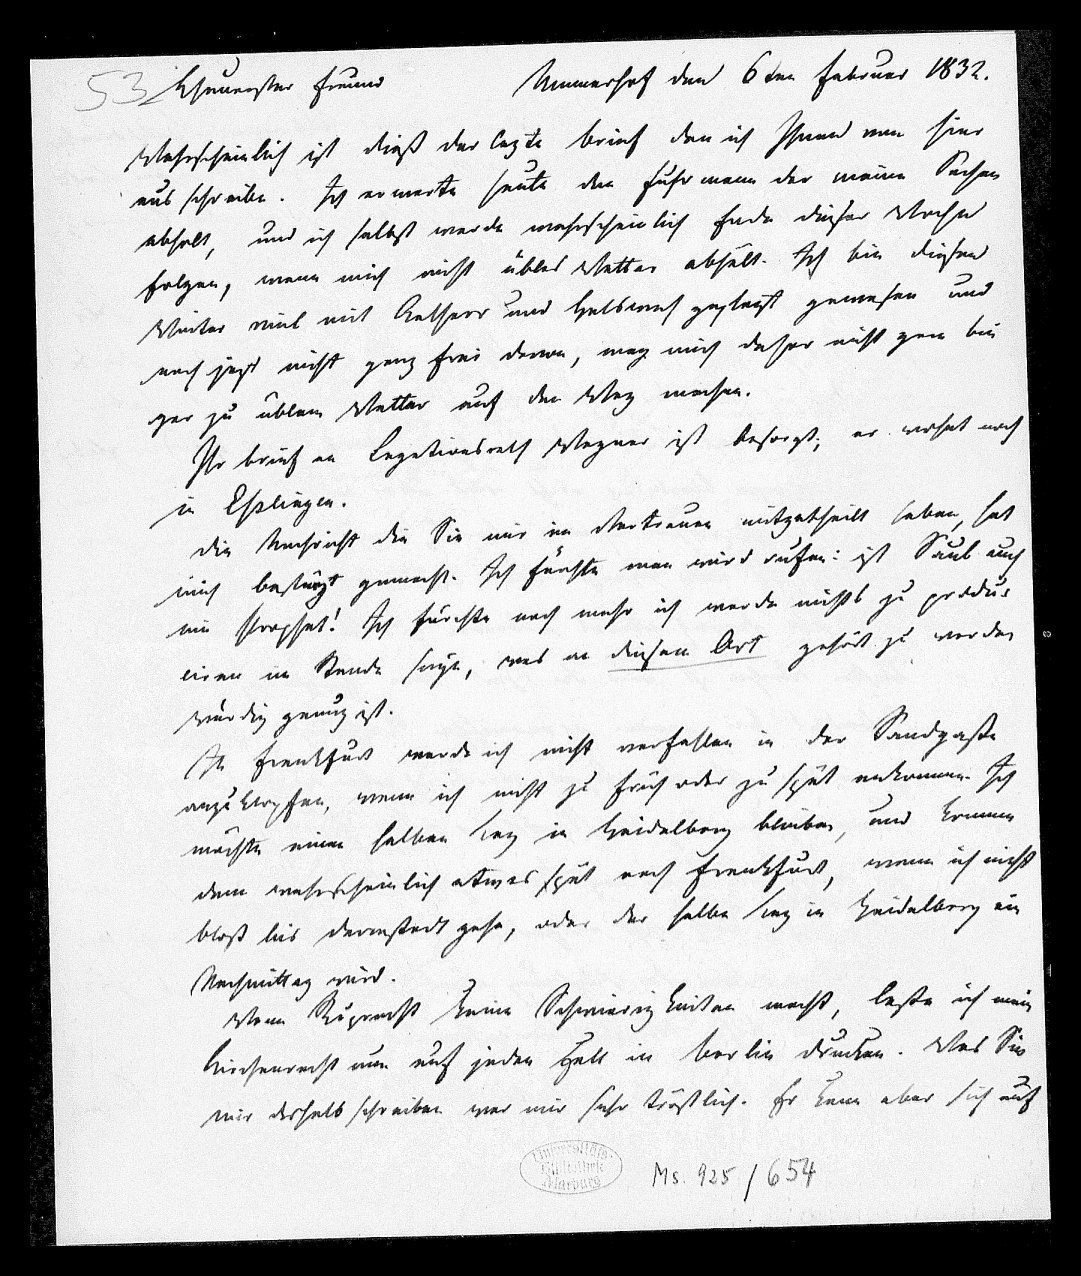 53
Theuerster Freund Ammerhof den 6ten Februar 1832.
Wahrscheinlich ist dieß der lezte Brief den ich Ihnen von hier
aus schreibe. Ich erwarte heute den Fuhrmann der meine Sachen
abholt, und ich selbst werde wahrscheinlich Ende dieser Woche
folgen, wenn mich nicht übles Wetter abhält. Ich bin diesen
Winter viel mit Catharr und Halsweh geplagt gewesen und
noch jezt nicht ganz frei davon, mag mich daher nicht gern bei
gar zu üblem Wetter auf den Weg machen.
Ihr Brief an Legationsrath Wagner ist besorgt; er wohnt noch
in Eßlingen.
Die Nachricht die Sie mir im Vertrauen mitgetheilt haben, hat
mich bestürzt gemacht. Ich fürchte man wird rufen: ist Saul auch
ein Prophet! Ich fürchte noch mehr ich werde nichts zu produ-
ciren im Stande seyn, was an diesem Ort gehört zu werden
würdig genug ist.
In Frankfurt werde ich nicht verfehlen in der Sandgasse
anzuklopfen, wenn ich nicht zu früh oder zu spät ankomme. Ich
möchte einen halben Tag in Heidelberg bleiben, und komme
dann wahrscheinlich etwas spät nach Frankfurt, wenn ich nicht
bloß bis Darmstadt gehe, oder der halbe Tag in Heidelberg ein
Nachmittag wird.
Wenn Ruprecht keine Schwierigkeiten macht, lasse ich mein
Kirchenrecht nun auf jeden Fall in Berlin drucken. Was Sie
mir deshalb schreiben war mir sehr tröstlich. Er kann aber sich auf
Universitäts-
Bibliothek
Marburg
Ms. 925/654